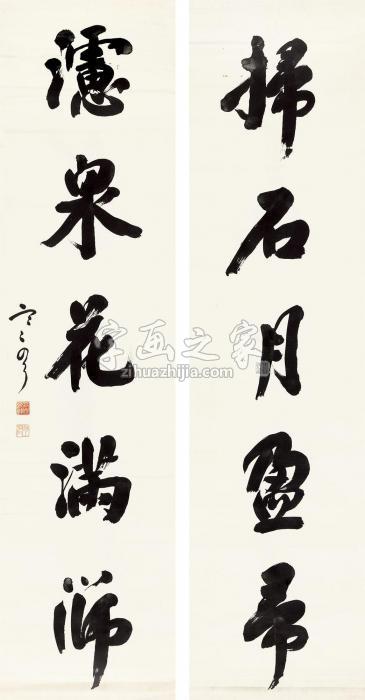 掃石月盈帚
濾泉花滿篩
字画之家
zihuazhijia.com